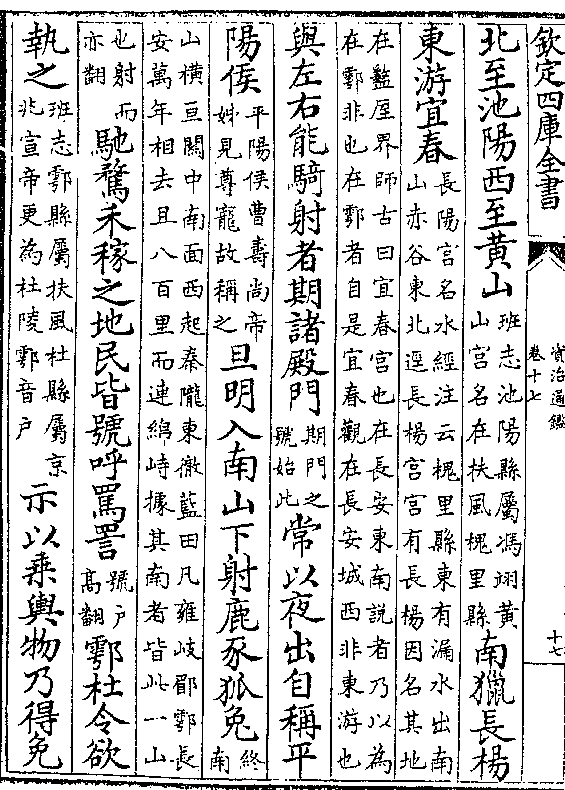 欽定四庫全書
資治通鑑
卷十七
十七
北至池陽西至黄山班志池陽縣屬馮翊黄山宮名在扶風槐里縣南獵長楊
東游宜春長陽宮名水經注云槐里縣東有漏水出南山赤谷東北逕長楊宮宮有長楊因名其地
在盩厔界師古曰宜春宮也在長安東南說者乃以為在鄠非也在鄠者自是宜春觀在長安城西非東游也
與左右能騎射者期諸殿門期門之號始此常以夜出自稱平
陽侯平陽侯曹壽尚帝姊見尊寵故稱之旦明入南山下射鹿豕狐兔終南
山横亘關中南面西起秦隴東徹藍田凡雍岐郿鄠長安萬年相去且八百里而連綿峙據其南者皆此一山
也射而亦翻馳騖禾稼之地民皆號呼罵詈號户髙翻鄠杜令欲
執之班志鄠縣屬扶風杜縣屬京兆宣帝更為杜陵鄠音户示以乘輿物乃得免